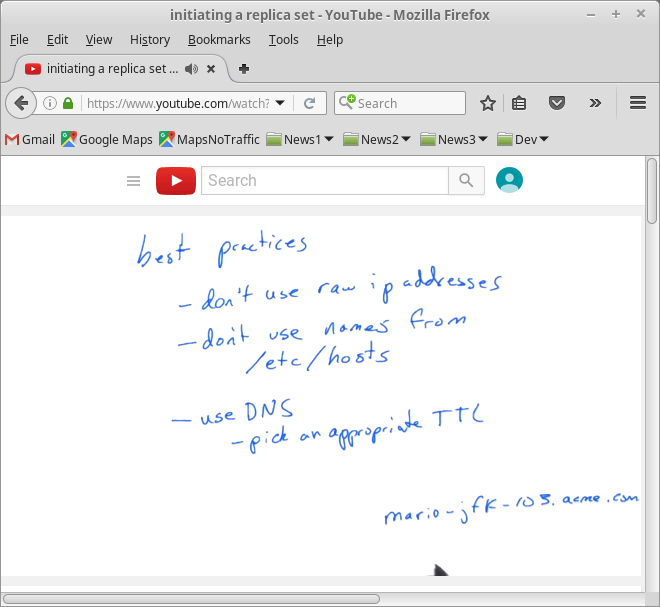 initiating a replica set - YouTube - Mozilla Firefox
File Edit View History Bookmarks Tools Help
initiating a replica set ...
https://www.youtube.com/watch? Search
Gmail Google Maps MapsNoTraffic News1 News2 News3 Dev
Search
best practices
- don't use raw ip addresses
- don't use names from
/etc/hosts
- use DNS
- pick an appropriate TTL
mario-jfk-103.acme.com